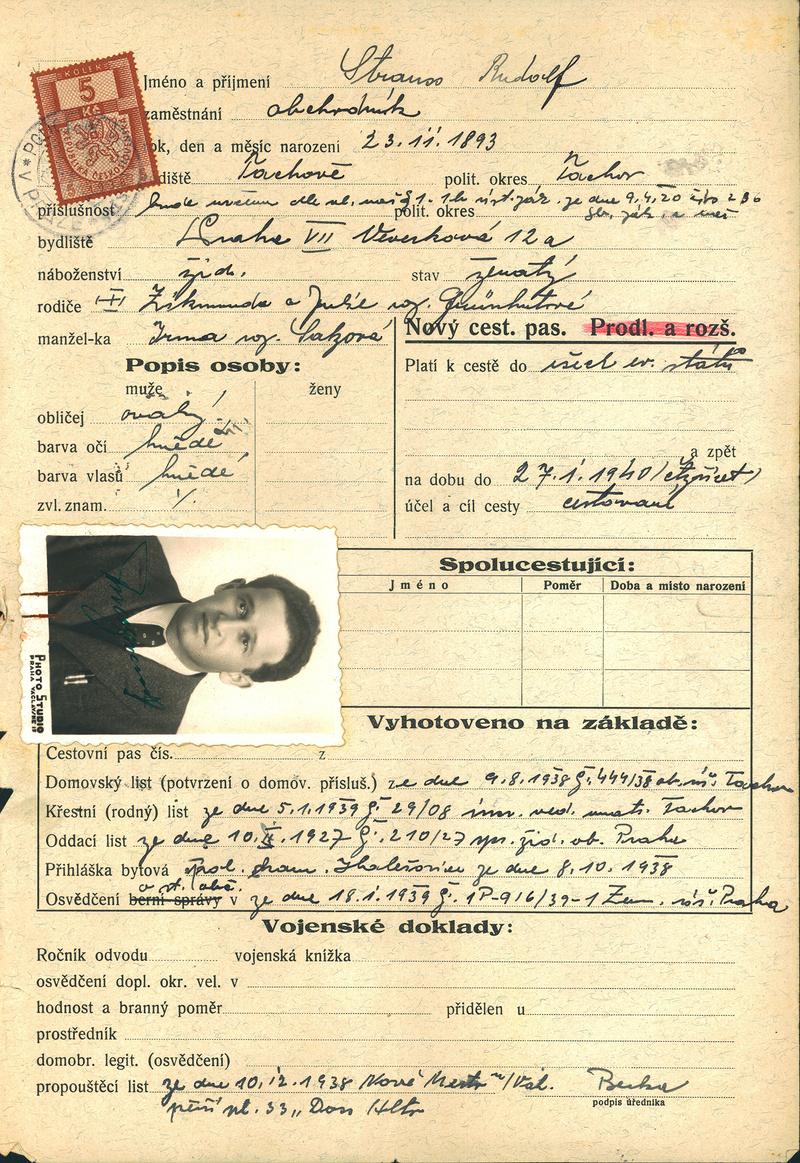 KOLEK
5
Kč
REPUBLIKA ČESKOSLOVENSKÁ
Jméno a příjmení Strauss Rudolf
zaměstnání obchodník
ok, den a měsíc narození 23.11.1893
diště Tachově polit. okres Tachov
příslušnost bude uveden dle vl. nař. § 1. je dne 9.4.20 č. 236
polit. okres sb. zák. a nař
bydliště Praha VII Veverkova 12a
náboženství žid. stav ženatý
rodiče Zikmunda a Julie roz. Grünhutové
manžel-ka Irma roz. Salzová
Nový cest. pas. Prodl. a rozš.
Popis osoby:
muže ženy
Platí k cestě do všech ev. států
obličej oválný
barva očí hnědé
barva vlasů hnědé
a zpět
na dobu do 27.1.1940 (čtyřicet)
zvl. znam.
účel a cíl cesty cestování
Spolucestující:
Jméno Poměr Doba a místo narození
PHOTO STUDIO
PRAHA VÁCLAVSKÉ
Vyhotoveno na základě:
Cestovní pas čís. z
Domovský list (potvrzení o domov. přísluš.) ze dne 9.8.1938 č. 444/38 ob. úř. Tachov
Křestní (rodný) list ze dne 5.1.1939 č. 29/08 ved. mat. Tachov
Oddací list ze dne 10. 1927 č. 210/27 žid. ob. Praha
Přihláška bytová pol. kom. Holešovice ze dne 8.10.1938
o st. obč.
Osvědčení berní správy v ze dne 18.1.1939 č. 1P-916/39-1 Zem. úř. Praha
Vojenské doklady:
Ročník odvodu vojenská knížka
osvědčení dopl. okr. vel. v
hodnost a branný poměr přidělen u
prostředník
domobr. legit. (osvědčení)
propouštěcí list ze dne 10.12.1938 Nové Město n/Váh.
pěší pl. 33 „Doss Alto
podpis úředníka